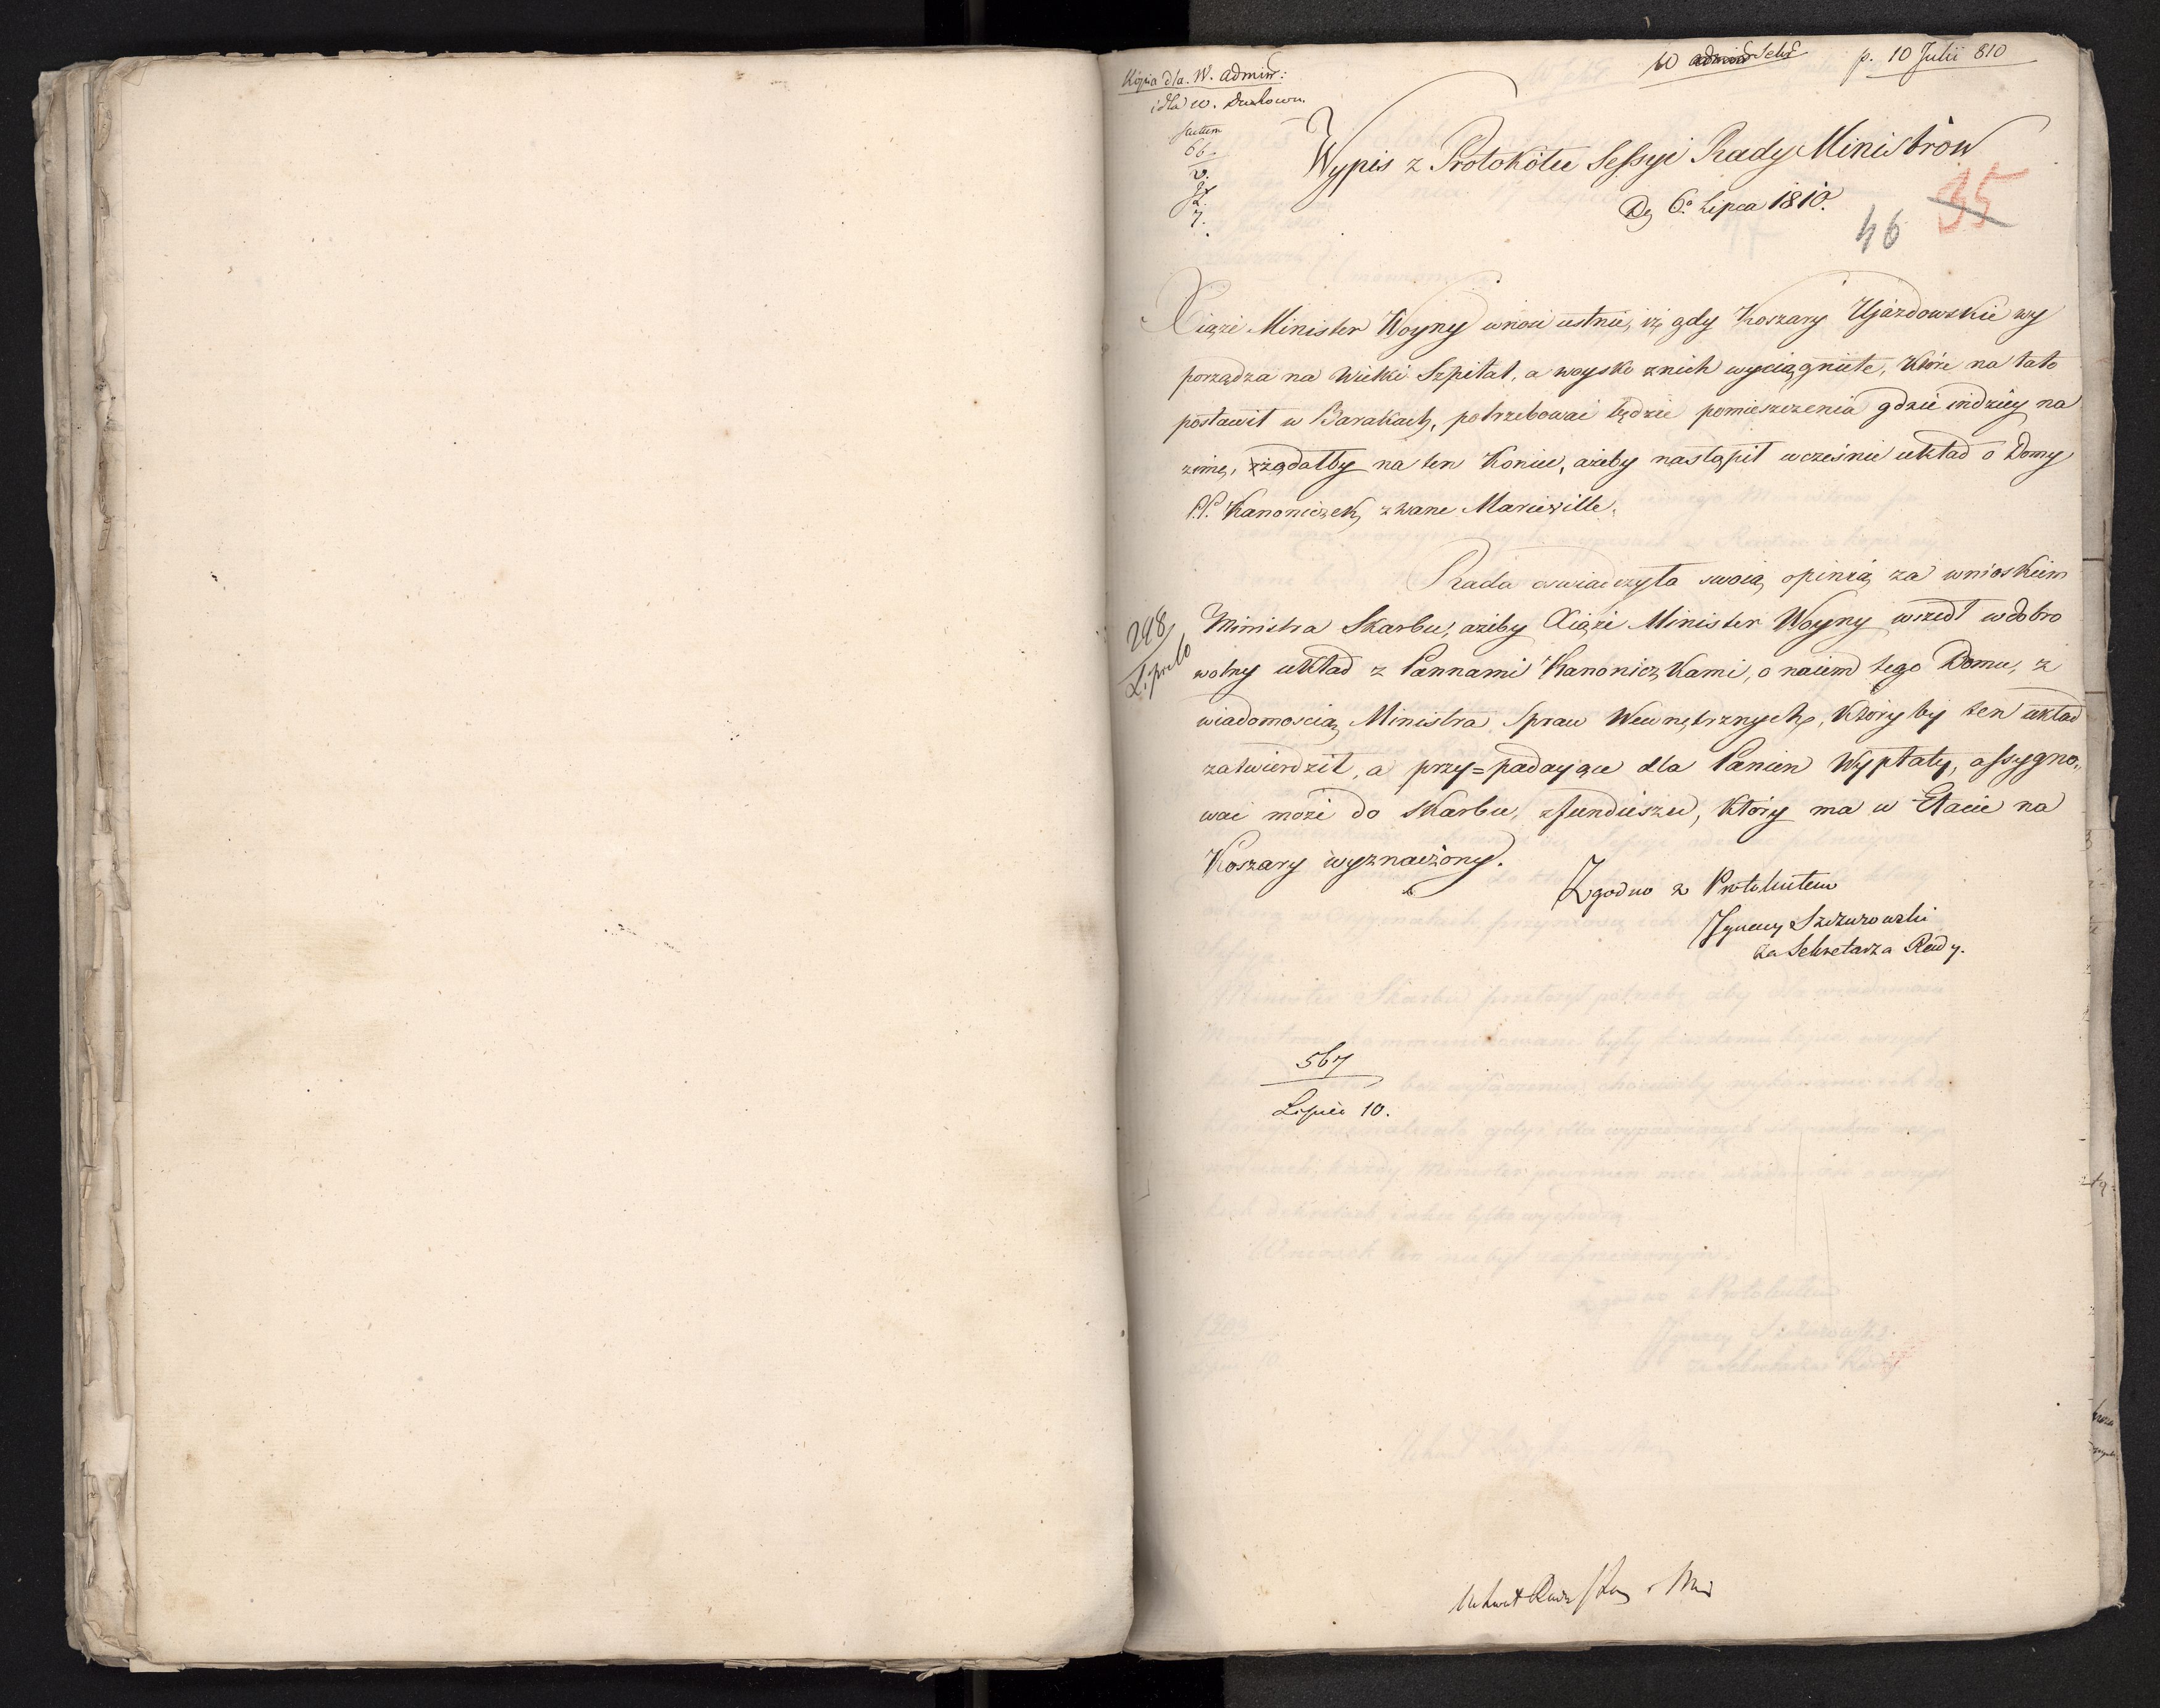 Kopia dla. W. admin:
i dla W. Duchown.
W admin Sekr p. 10 Julii 810
factum
66.
7.
Wypis z Protokółu Sessyi Rady Ministrów
Dnia 6o Lipca 1810.
46 35
Xiąże Minister Woyny wnosi ustnie, iż gdy Koszary Ujazdowskie wy
porządza na Wielki Szpital, a woysko z nich wyciągnięte, które na lato
postawił w Barakach, potrzebować będzie pomieszczenia gdzie indziey na
zimę, żądałby na ten Koniec, ażeby nastąpił wcześnie układ o Domy
P.P. Kanoniczek, zwane Marieville.
Rada oswiadczyła swoią opinią za wnioskiem
298
Lipca 10
Ministra Skarbu, ażeby Xiąże Minister Woyny wszedł w dobro
wolny układ z Pannami Kanoniczkami, o naiem tego Domu, z
wiadomoscią Ministra Spraw Wewnętrznych, któryby ten układ
zatwierdził, a przy=padaiące dla Panien Wypłaty, assygno„
wać może do Skarbu, z funduszu, który ma w Etacie na
Koszary wyznaczony.
Zgodno z Protokułem
Ignacy Szczurowski
za Sekretarza Rady.
567
Lipiec 10.